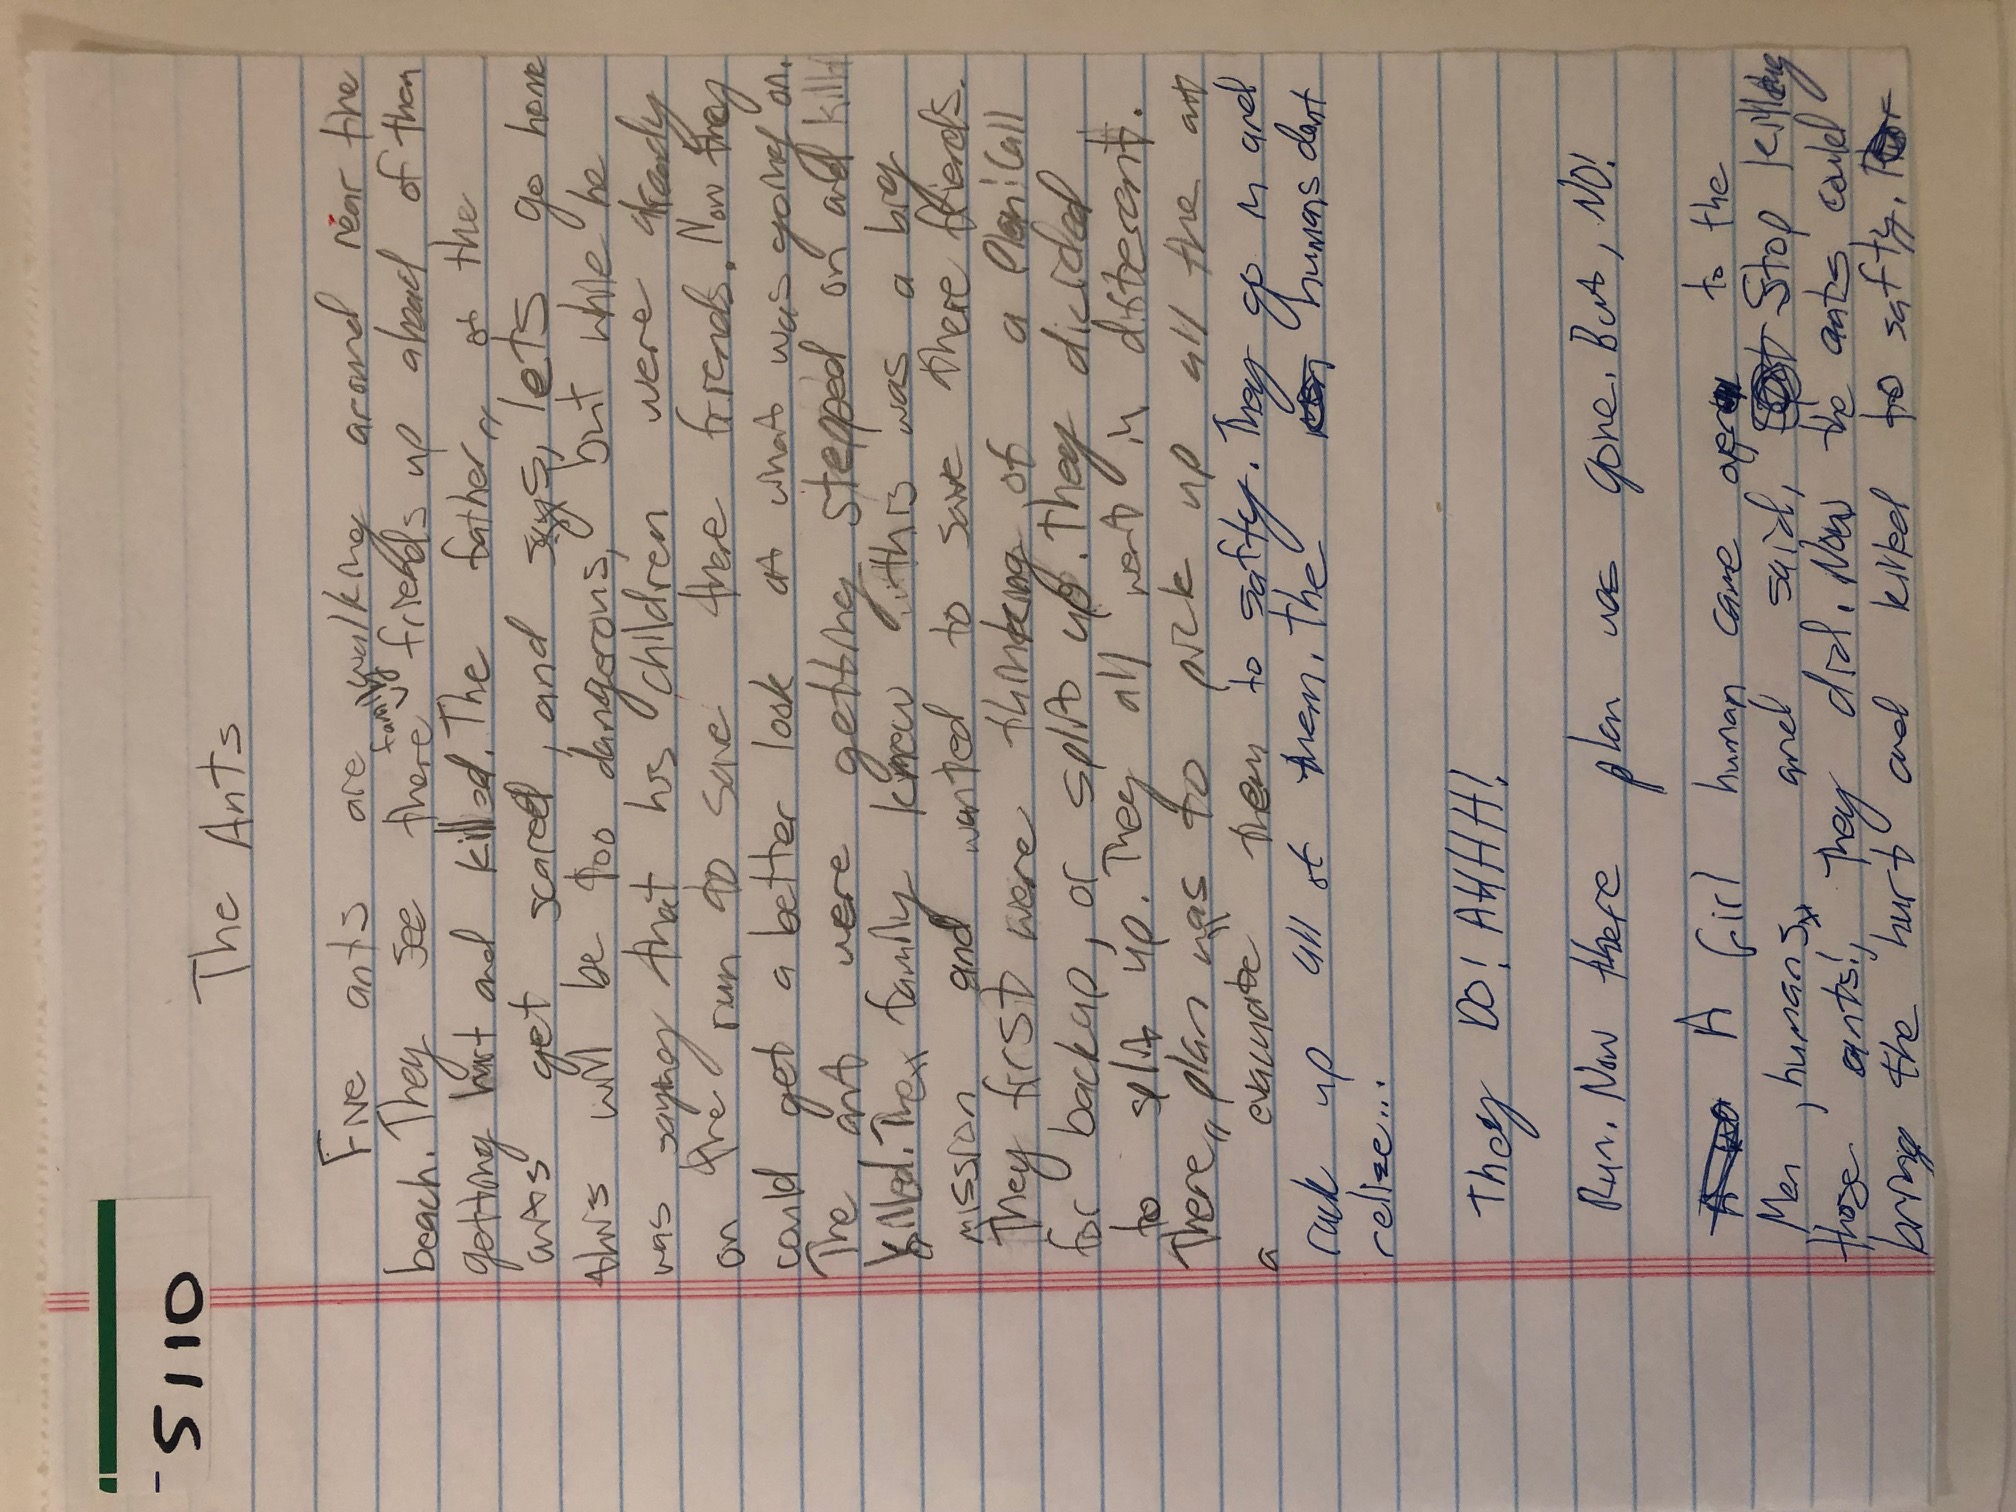 5110
The Ants
Five ants are walking around near the
beach. They see there family friends up ahead of them
getting hurt and killed. The father of the
ants get scared, and says, lets go home
this will be too dangerous, but while he
was saying that his children were already
on the run to save there friends. Now they
could get a better look at what was going on.
The ant were getting stepped on and
killed. The family knew this was a big
mission and wanted to save there friends.
They first were thinking of a Plan: Call
for backup, or split up. They dicided
to split up. They all went in different.
There plan was to pick up all the ant
a evacuate them to safty. They go in and
rack up all of them. The humans dont
relize...
They DO! AHHH!
Run. Now there plan was gone. But, NO!
A Girl human came over to the
Men, humans, and said, Stop killing
those ants!, They did. Now the ants could
bring the hurt and killed to safty.